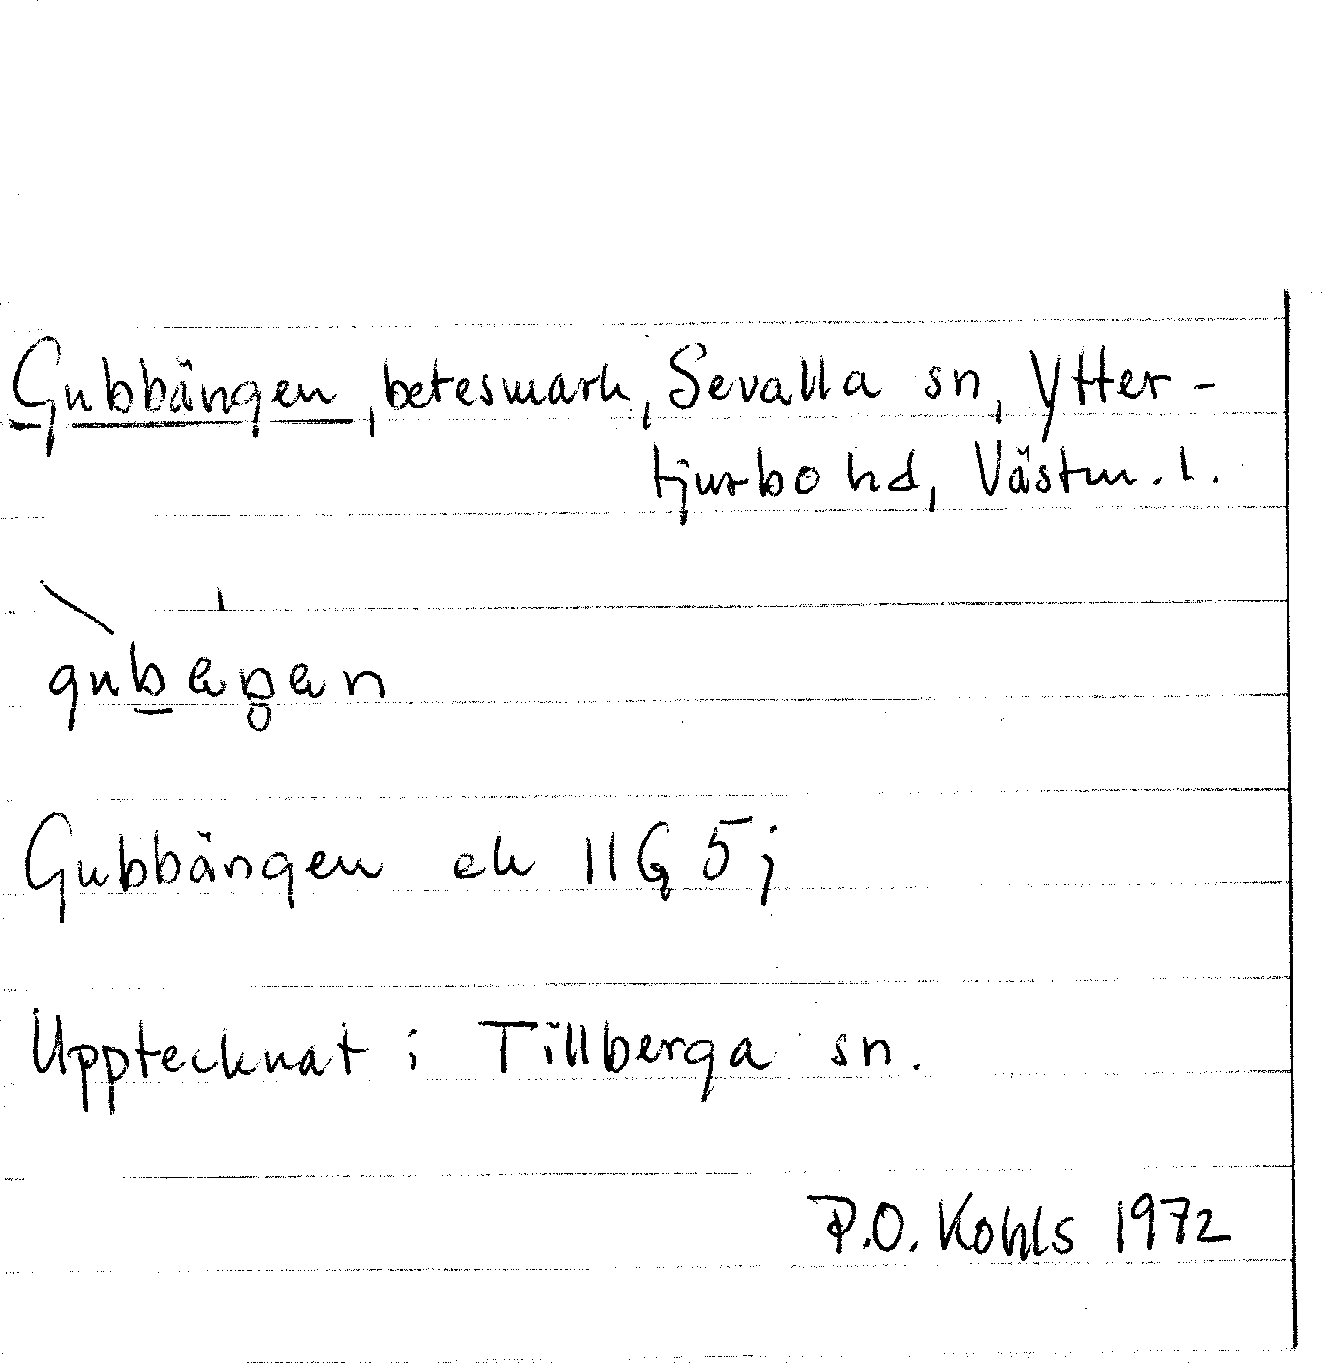 Gubbängen, betesmark, Sevalla sn, Ytter-
tjurbo hd, Västm. l.
Gubbängen ek 11G 5j
Upptecknat i Tillberga sn.
P.O. Kohls 1972